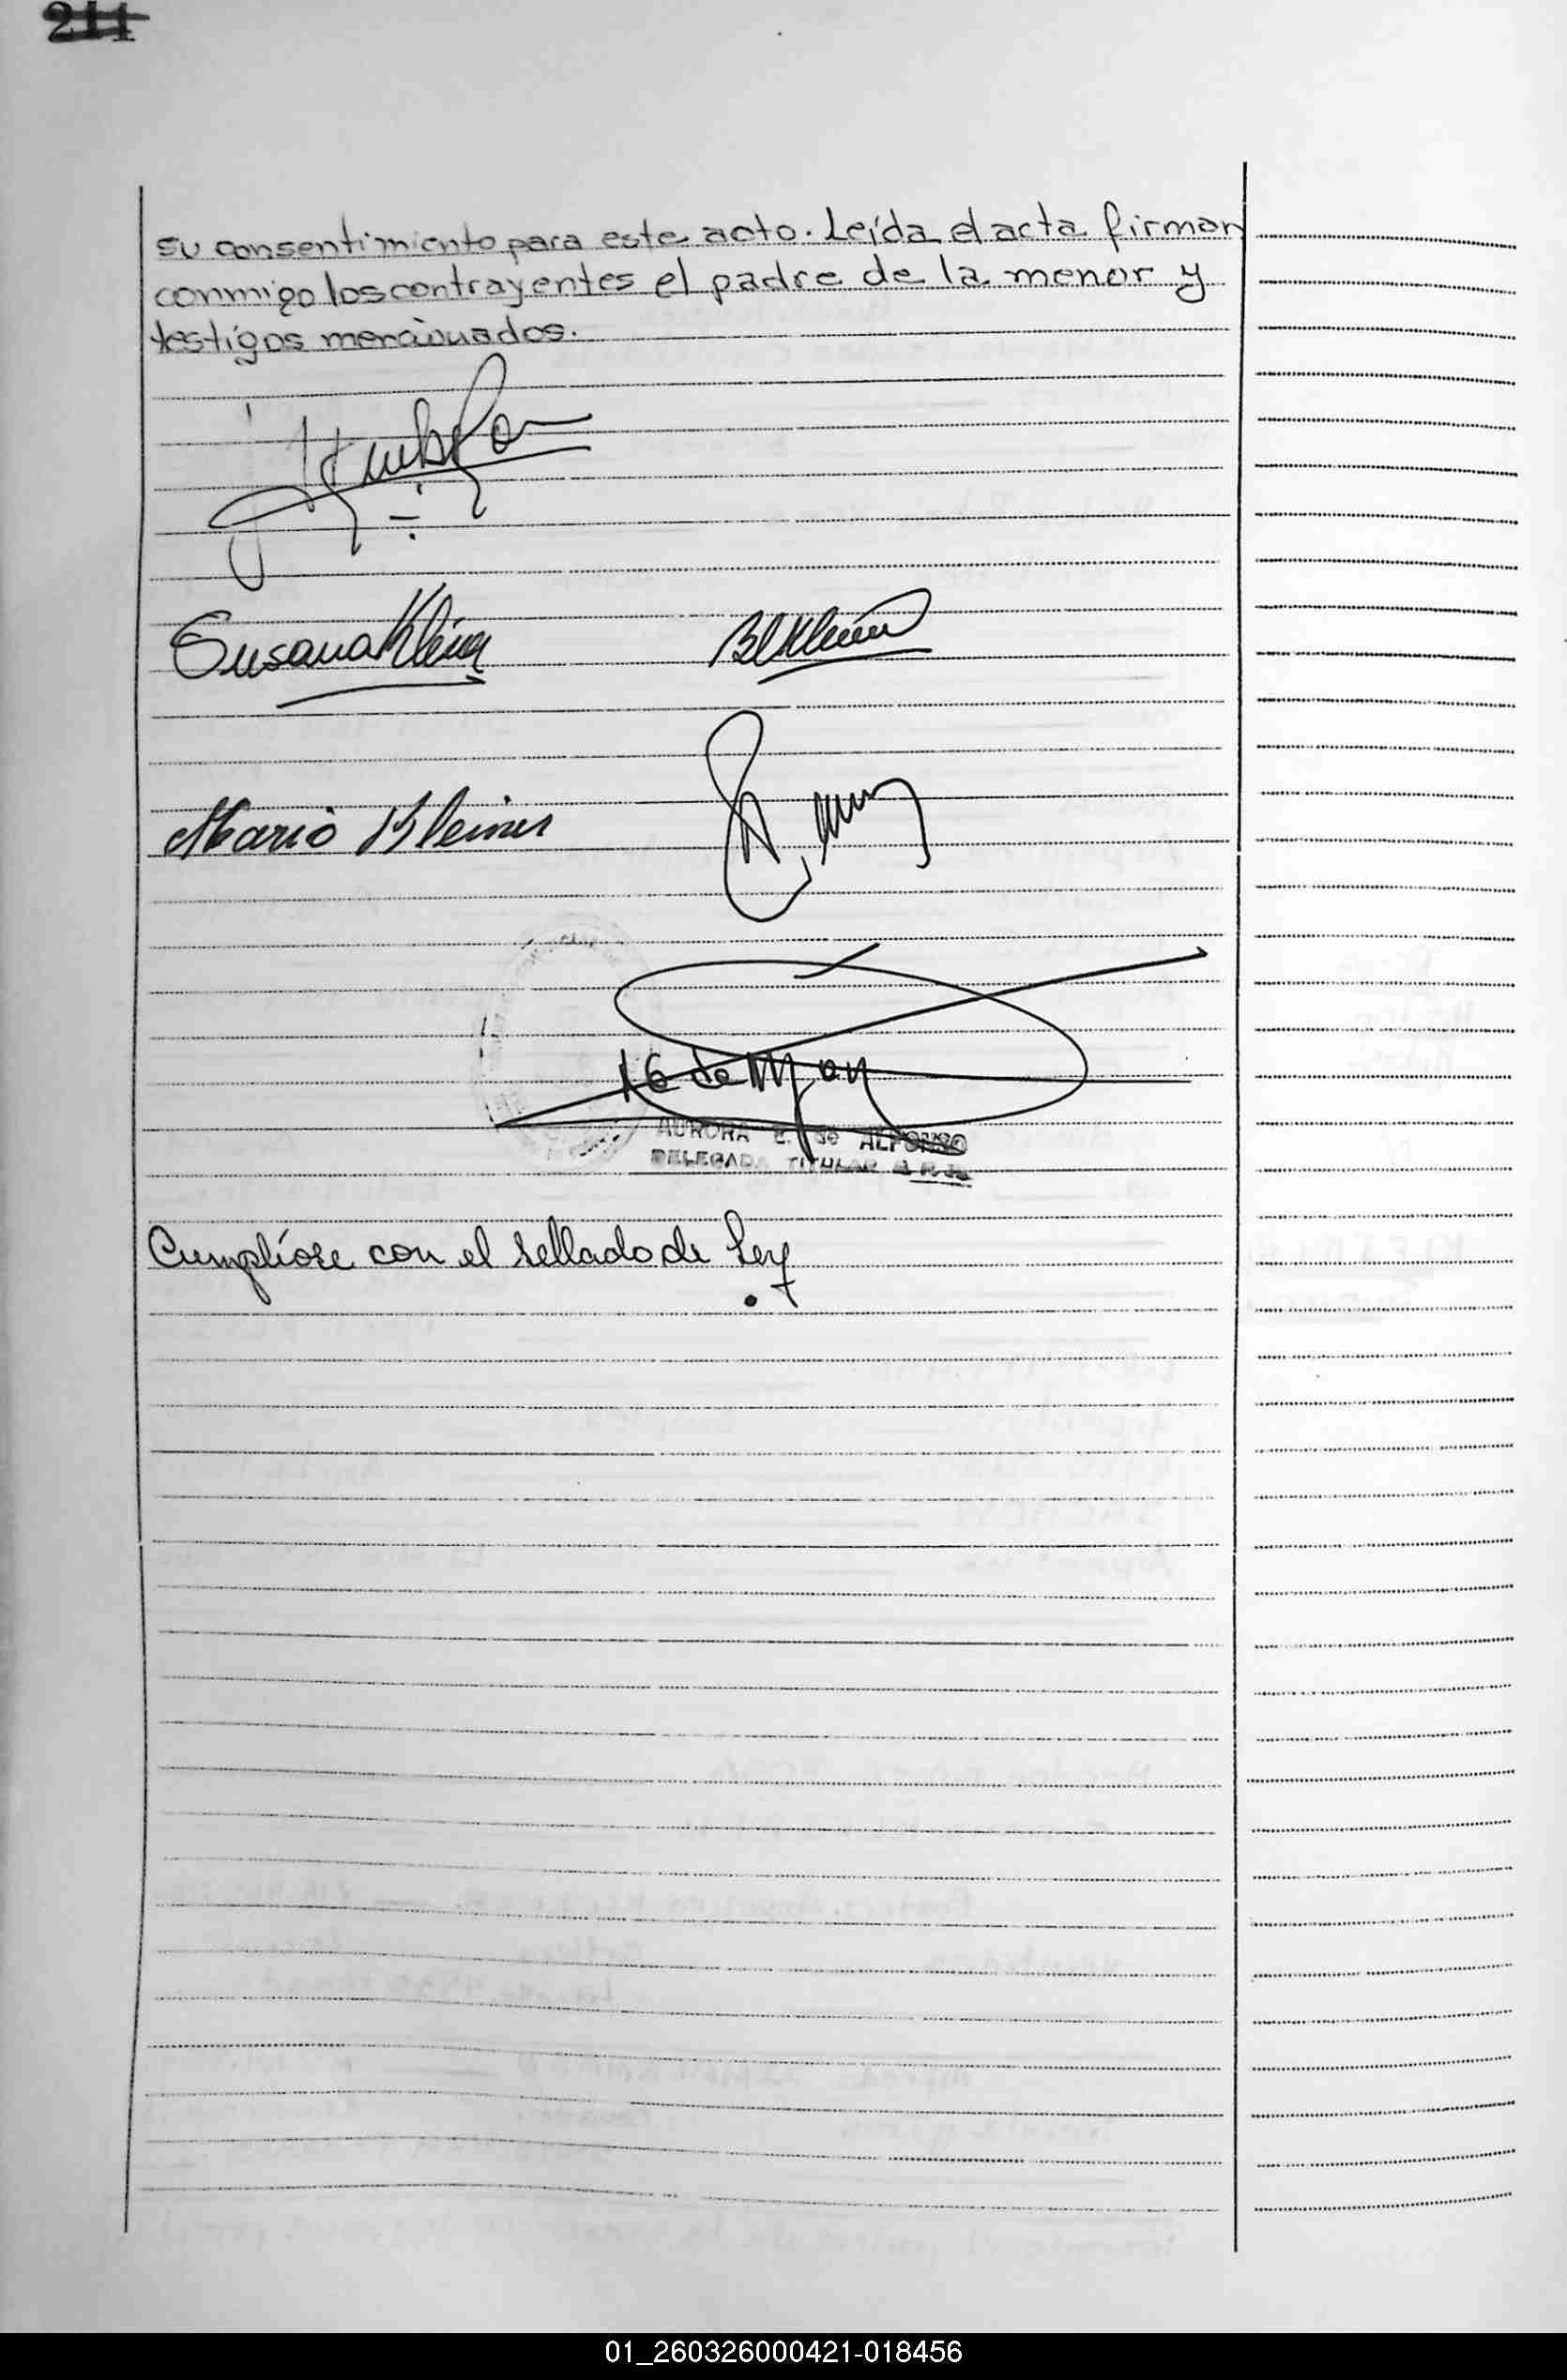 211
su consentimiento para este acto. Leída el acta firman
conmigo los contrayentes el padre de la menor y
testigos mencionados.
Susana Kleiner
Mario Kleiner
AURORA E. de ALFONSO
DELEGADA TITULAR
Cumplióse con el sellado de Ley
01_260326000421-018456